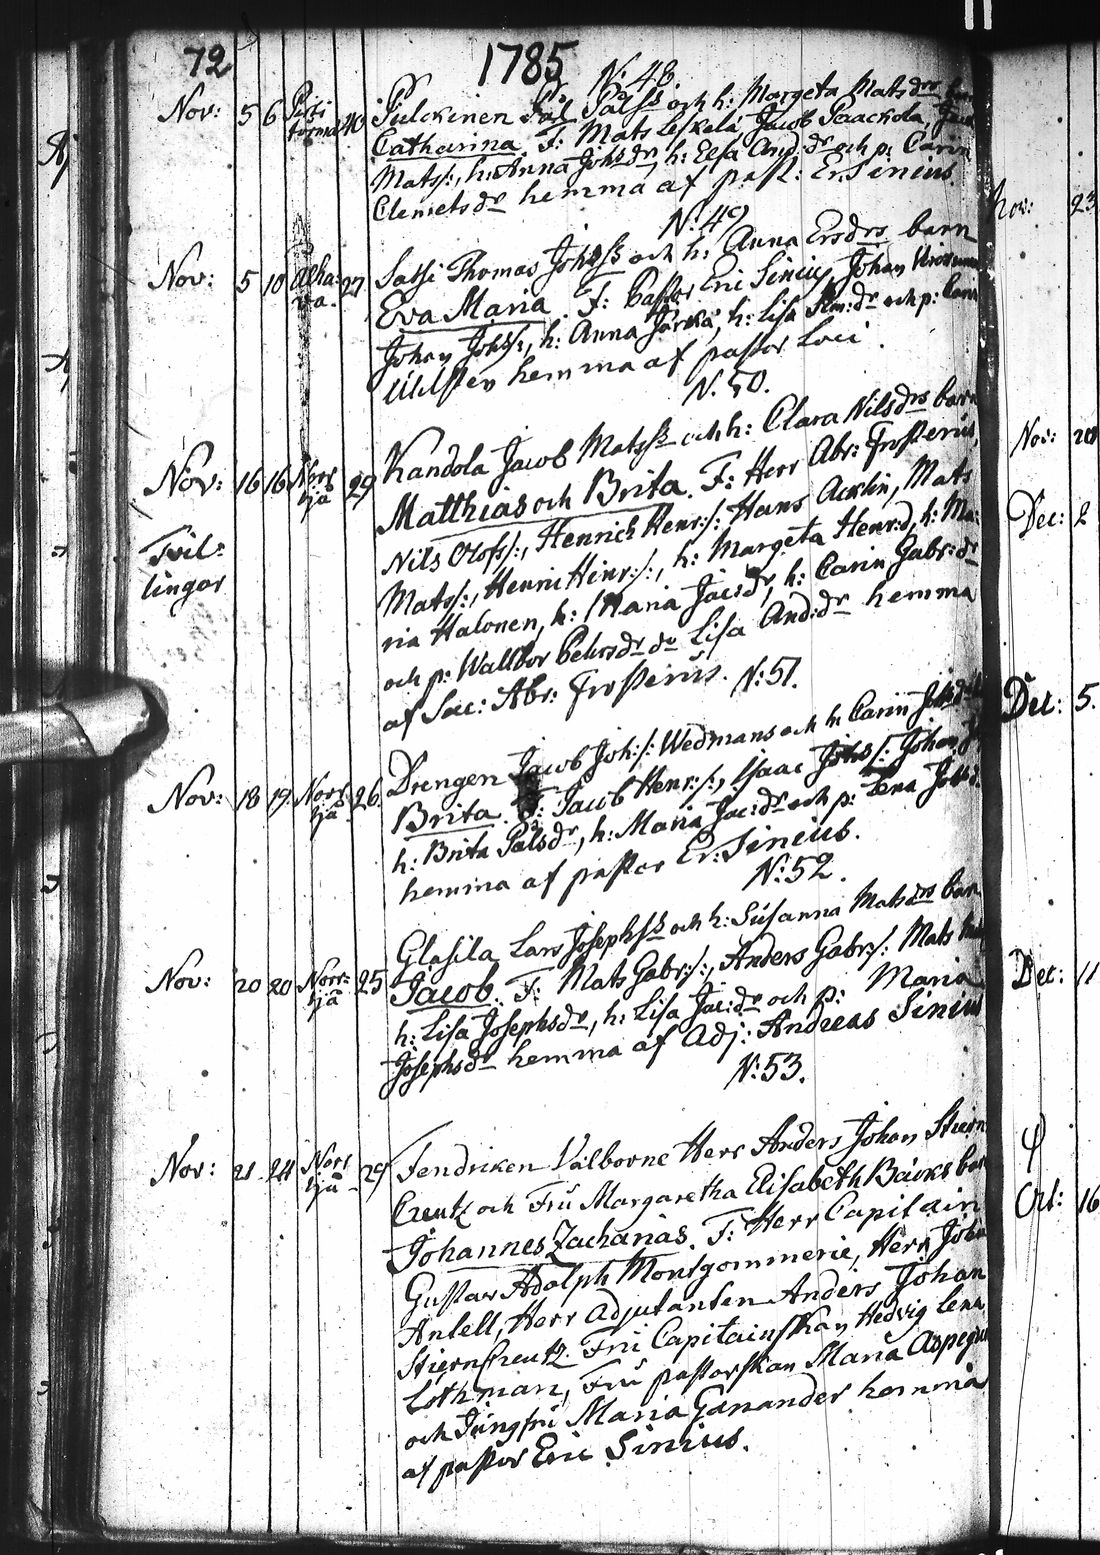 72 1785
N: 48
Nov: 5 6 40 Pulckinen Pål Pålsß och h: Margeta Matsdrs
Catharina. F: Mats Leskelä, Jacob Paackola,
Mats/:, h: Anna Johsdr, h: Elsa And:dr och p: Carin
Clemetsdr hemma af past: Er: Sinius.
N: 49
Nov: 5 10 27 Satzi Thomas Johsß och h: Anna Ersdrs barn
Eva Maria. F: Pastor Eric Sinius, Johan
Johan Johs/:, h: Anna h: Lisa och p:
hemma af pastor Loci.
N. 50.
Nov: 16 16 Norr 29 Kandola Jacob Matsß och h: Clara Nilsdrs barn
sjä Matthias och Brita. F: Herr Abr: Frosterus,
Nils Olofs/:, Henrich Henr:/: Hans Acklin, Mats
Tvil-
lingar
Mats/:, Henric Hinr:/:, h: Margeta Henr:d, h: Ma-
ria Halonen, h: Maria Jac:dr, h: Carin Gabr:dr
och p: Wallbor Pehrsdr do Lisa And:dr hemma
af Sac: Abr: Frosterus.
N: 51.
Nov: 18 19 Norr 26 Drengen Jacob Joh:/: Wedmans och h: Carin
sjä Brita. F: Jacob Henr:/:, Isaac Johs/: Johan
h: Brita Pålsdr, h: Maria Jac:dr och p: Lena
hemma af pastor Er: Sinius.
N: 52.
Nov: 20 20 Norr- 25 Glasila Lars Josephsß och h: Susanna Matsdrs barn
sjä Jacob. F: Mats Gabr:/:, Anders Gabr:/: Mats
h: Lisa Josephsdr, h: Lisa Jac:dr och p: Maria
Josephsdr hemma af Adj: Andreas Sinius
N: 53.
Nov: 21 24 Norr 29 Fendriken Välborne Herr Anders Johan Stiern
sjä Creutz och Fru Margaretha Elisabeth Bäcks barn
Johannes Zacharias. F: Herr Capitain
Gustav Adolph Montgommerie, Herr Joh
Antell, Herr Adjutanten Anders Johan
Stierncreutz. Fru Capitainskan Hedvig Lena
Lothman, Fru pastorskan Maria
och Jungfru Maria Ganander hemma
af pastor Eric Sinius.
Nov: 23
Nov: 20
Dec: 2
Dec: 5.
Dec: 11
Oct: 16